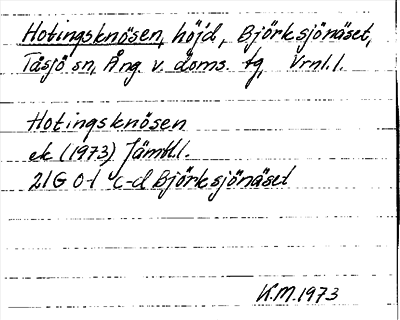 Hotingsknösen, höjd, Björksjönäset,
Tåsjö sn, Ång. v. doms. tg, Vrnl.l.
Hotingsknösen
ek (1973) Jämtl.l.
21G 0-1 c-d Björksjönäset
K.M. 1973